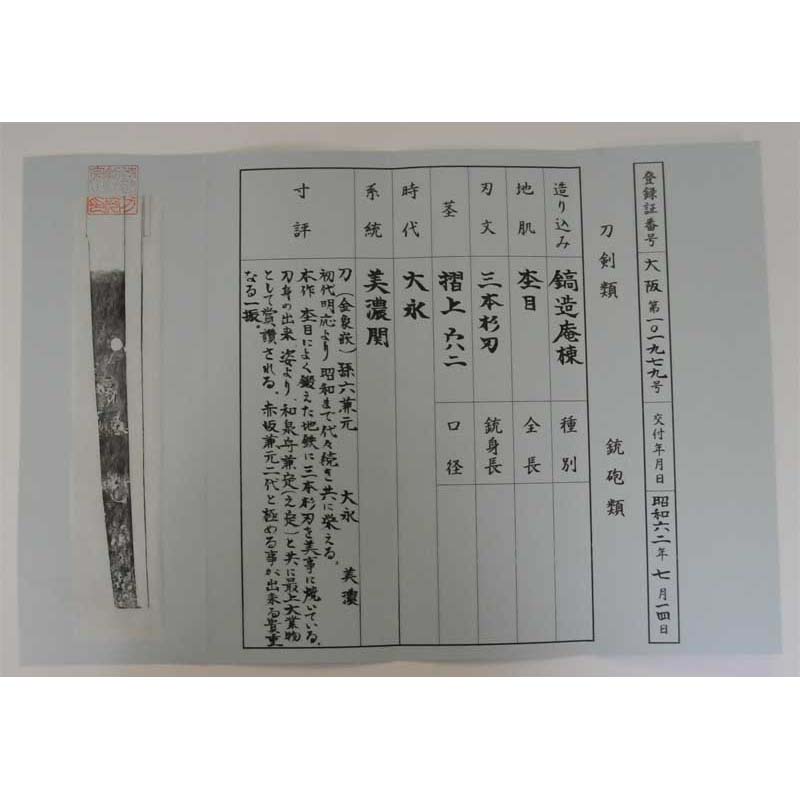 登録証番号 大阪 第一〇一九七九号 交付年月日 昭和六二年 七月一四日
刀剣類 銃砲類
造り込み 鎬造庵棟 種別
地肌 杢目 全長
刃文 三本杉刃 銃身長
茎 摺上 穴二 口径
時代 大永
系統 美濃関
寸評
刀(金象嵌)孫六兼元 大永 美濃
初代明応より昭和まで代々続き共に栄える。
本作 杢目によく鍛えた地鉄に三本杉刃を美事に焼いている。
刀身の出来 姿より、和泉守兼定(之定)と共に最上大業物
として賞讃される。赤坂兼元二代と極める事が出来る貴重
なる一振。